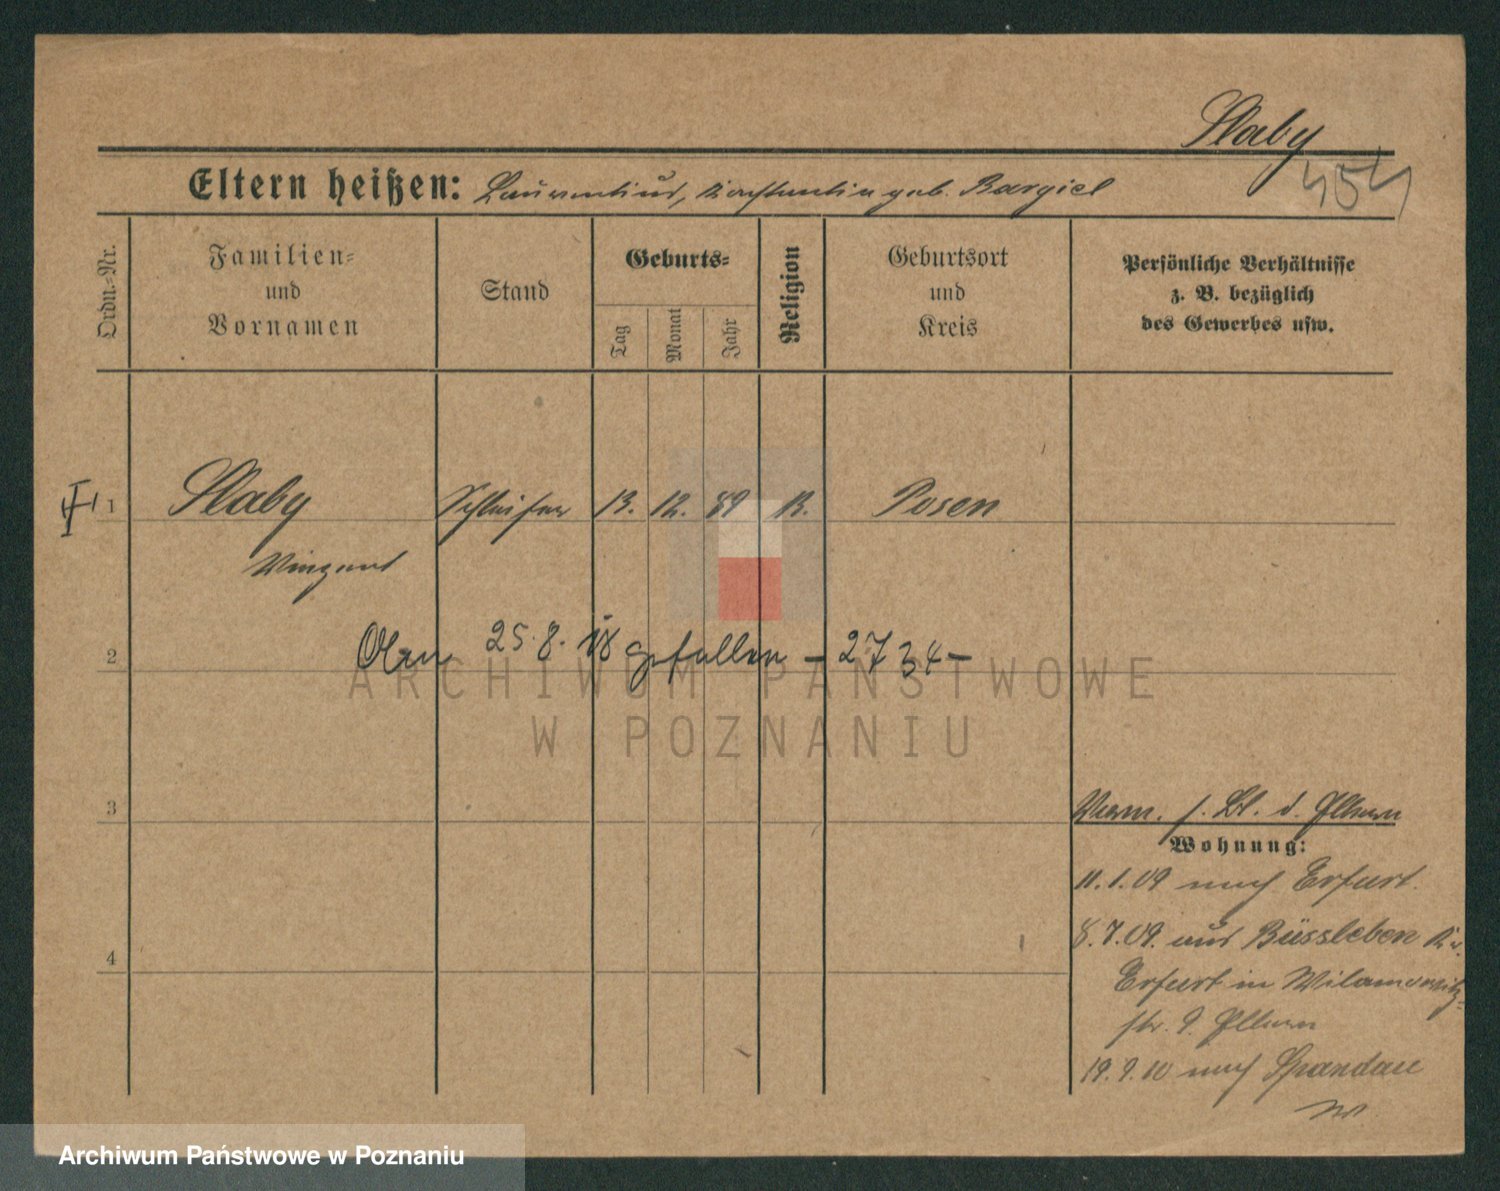 Slaby
Eltern heißen: Laurentius, Konstantia geb. Bargiel
Ordn.-Nr.
Familien-
und
Vornamen
Stand
Geburts-
Tag
Monat
Jahr
Religion
Geburtsort
und
Kreis
Persönliche Verhältnisse
z. B. bezüglich
des Gewerbes usw.
1 Slaby Schleifer 13. 12. 89 K. Posen
Vinzent
2 25.8.18 gefallen – 2734 –
ARCHIWUM PAŃSTWOWE
W POZNANIU
3
Verm. s. Bl. d. Eltern
Wohnung:
11.1.09 nach Erfurt.
8.7.09. aus Büssleben Kr.
4
Erfurt in Wilamowitz-
str. 9. Eltern
19.9.10 nach Spandau
Archiwum Państwowe w Poznaniu